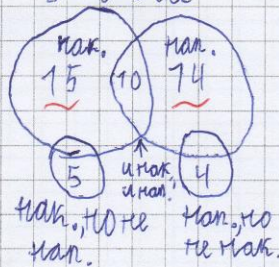 нак. нап.
15 10 14
5 и нак., и нап. 4
нак., но не нап.
нап., но не нак.